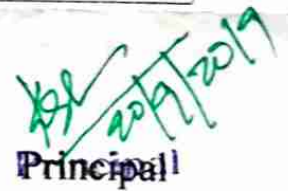 20/9/2019
Principal